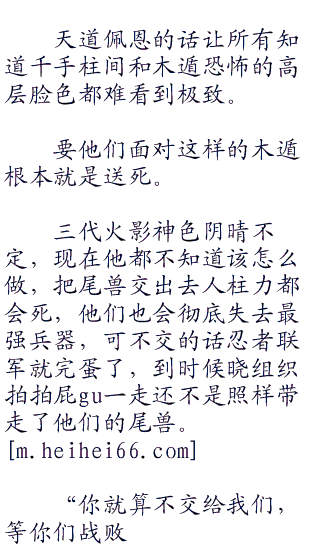 天道佩恩的话让所有知
道千手柱间和木遁恐怖的高
层脸色都难看到极致。
要他们面对这样的木遁
根本就是送死。
三代火影神色阴晴不
定，现在他都不知道该怎么
做，把尾兽交出去人柱力都
会死，他们也会彻底失去最
强兵器，可不交的话忍者联
军就完蛋了，到时候晓组织
拍拍屁gu一走还不是照样带
走了他们的尾兽。
[m.heihei66.com]
“你就算不交给我们，
等你们战败